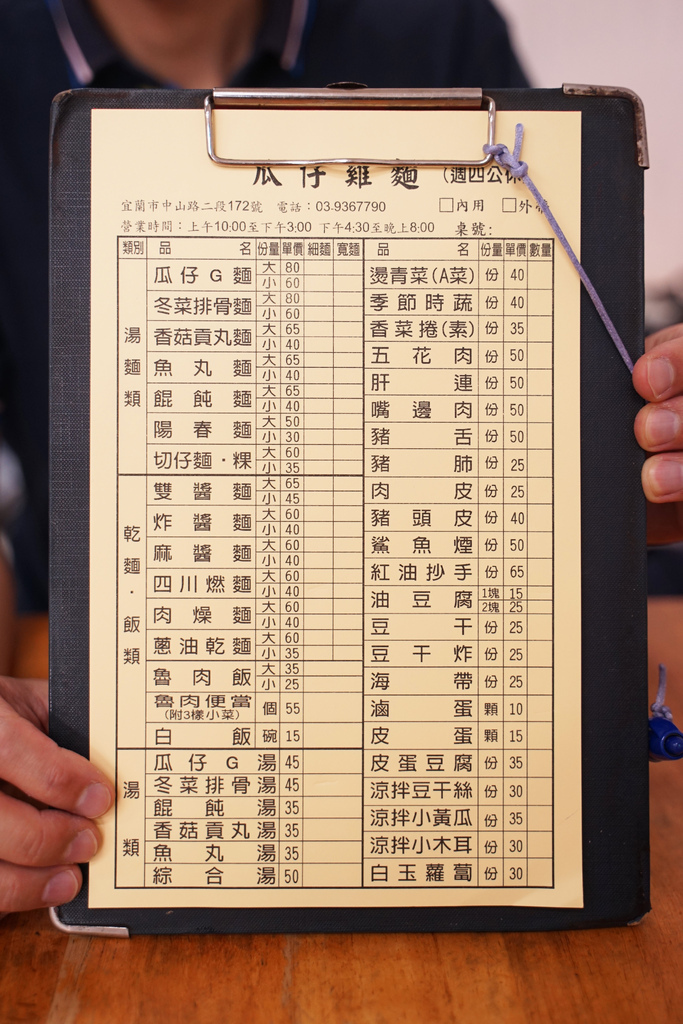 瓜仔雞麵 (週四公休
宜蘭市中山路二段172號 電話：03-9367790 □內用 □外帶
營業時間：上午10:00至下午3:00 下午4:30至晚上8:00 桌號：
類別 品名 份量 單價 細麵 寬麵
湯麵類
瓜仔G麵 大 80 小 60
冬菜排骨麵 大 80 小 60
香菇貢丸麵 大 65 小 40
魚丸麵 大 65 小 40
餛飩麵 大 65 小 40
陽春麵 大 50 小 30
切仔麵・粿 大 60 小 35
乾麵・飯類
雙醬麵 大 65 小 45
炸醬麵 大 60 小 40
麻醬麵 大 60 小 40
四川燃麵 大 60 小 40
肉燥麵 大 60 小 40
蔥油乾麵 大 60 小 35
魯肉飯 大 35 小 25
魯肉便當 (附3樣小菜) 個 55
白飯 碗 15
湯類
瓜仔G湯 45
冬菜排骨湯 45
餛飩湯 35
香菇貢丸湯 35
魚丸湯 35
綜合湯 50
品名 份量 單價 數量
燙青菜(A菜) 份 40
季節時蔬 份 40
香菜捲(素) 份 35
五花肉 份 50
肝連 份 50
嘴邊肉 份 50
豬舌 份 50
豬肺 份 25
肉皮 份 25
豬頭皮 份 40
鯊魚煙 份 50
紅油抄手 份 65
油豆腐 1塊 15 2塊 25
豆干 份 25
豆干炸 份 25
海帶 份 25
滷蛋 顆 10
皮蛋 顆 15
皮蛋豆腐 份 35
涼拌豆干絲 份 30
涼拌小黃瓜 份 35
涼拌小木耳 份 30
白玉蘿蔔 份 30